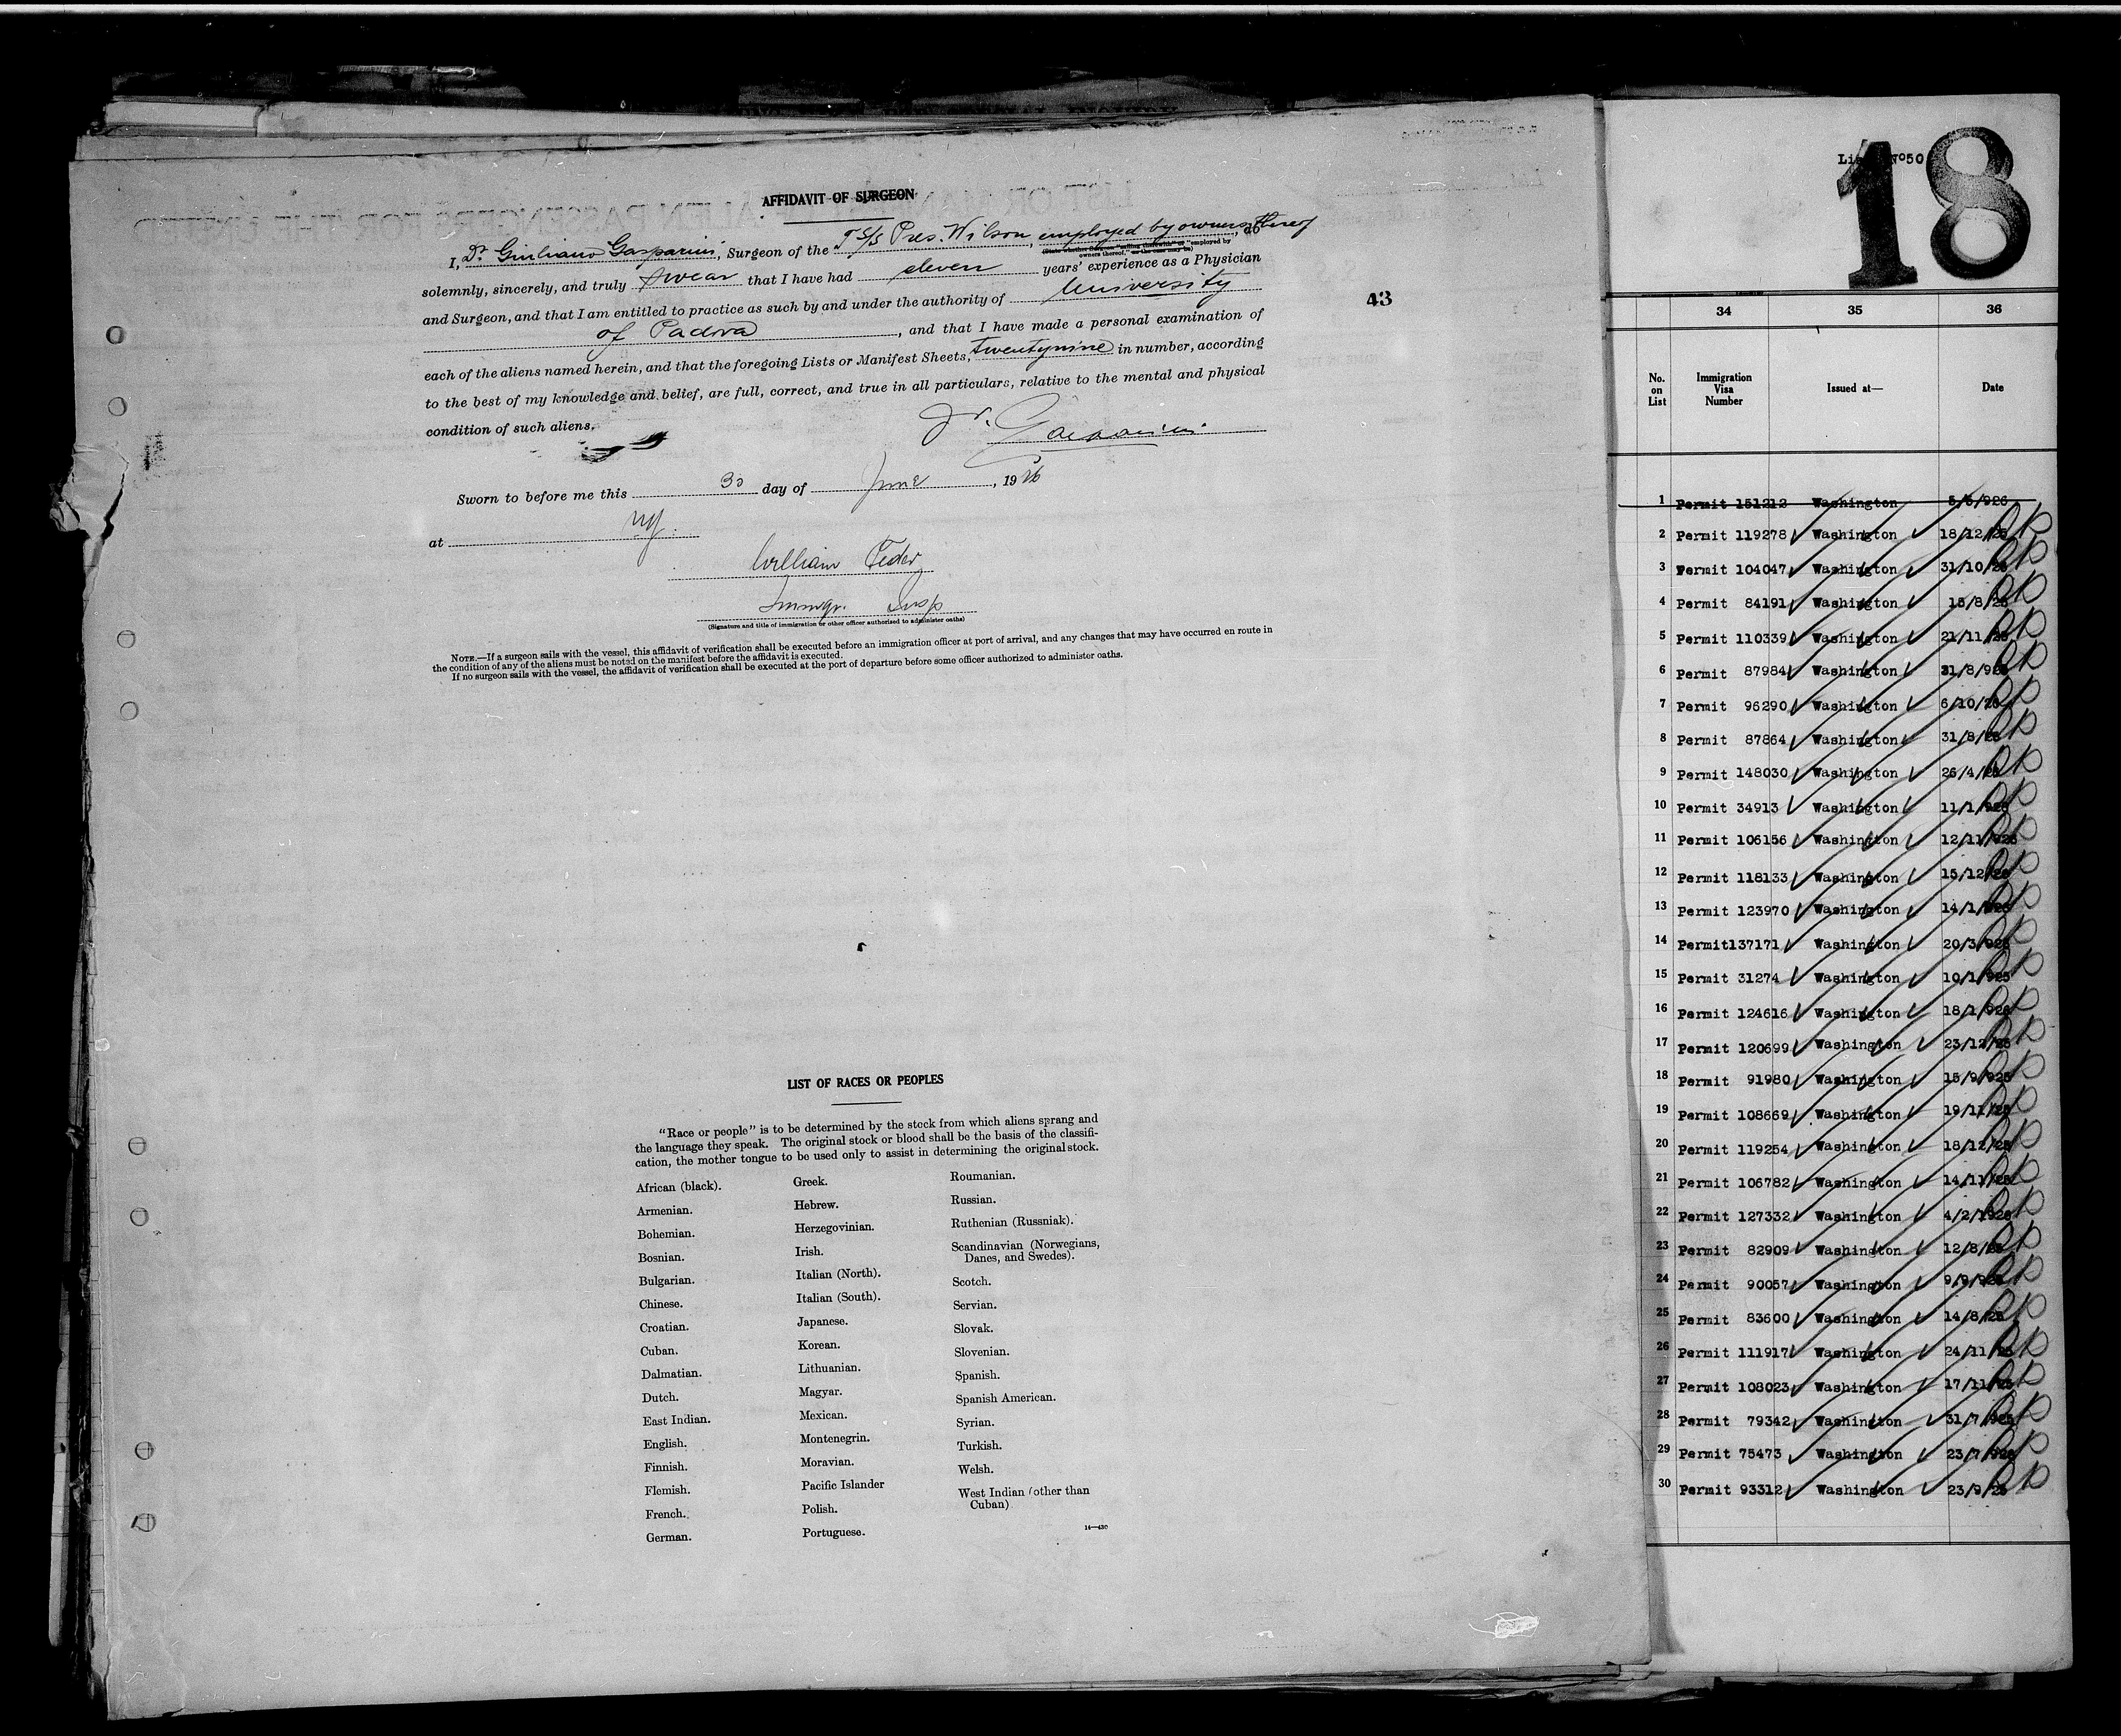 AFFIDAVIT OF SURGEON
I, Dr Giuliano Gasparini, Surgeon of the T S/S Pres. Wilson, employed by owners thereof, do
(State whether Surgeon "sailing therewith" or "employed by
owners thereof," as the case may be)
solemnly, sincerely, and truly swear that I have had eleven years' experience as a Physician
and Surgeon, and that I am entitled to practice as such by and under the authority of University
of Padova, and that I have made a personal examination of
each of the aliens named herein, and that the foregoing Lists or Manifest Sheets, twentynine in number, according
to the best of my knowledge and belief, are full, correct, and true in all particulars, relative to the mental and physical
condition of such aliens.
Dr. Gasparini
Sworn to before me this 30 day of June, 1926
at NY.
William Feder
Immgr. Insp
(Signature and title of immigration or other officer authorized to administer oaths)
NOTE.—If a surgeon sails with the vessel, this affidavit of verification shall be executed before an immigration officer at port of arrival, and any changes that may have occurred en route in
the condition of any of the aliens must be noted on the manifest before the affidavit is executed.
If no surgeon sails with the vessel, the affidavit of verification shall be executed at the port of departure before some officer authorized to administer oaths.
43
LIST OF RACES OR PEOPLES
"Race or people" is to be determined by the stock from which aliens sprang and
the language they speak. The original stock or blood shall be the basis of the classifi-
cation, the mother tongue to be used only to assist in determining the original stock.
African (black).
Armenian.
Bohemian.
Bosnian.
Bulgarian.
Chinese.
Croatian.
Cuban.
Dalmatian.
Dutch.
East Indian.
English.
Finnish.
Flemish.
French.
German.
Greek.
Hebrew.
Herzegovinian.
Irish.
Italian (North).
Italian (South).
Japanese.
Korean.
Lithuanian.
Magyar.
Mexican.
Montenegrin.
Moravian.
Pacific Islander
Polish.
Portuguese.
Roumanian.
Russian.
Ruthenian (Russniak).
Scandinavian (Norwegians,
Danes, and Swedes).
Scotch.
Servian.
Slovak.
Slovenian.
Spanish.
Spanish American.
Syrian.
Turkish.
Welsh.
West Indian (other than
Cuban)
14—430
Nº50
18
34 35 36
No. on List Immigration Visa Number Issued at— Date
1 Permit 151212 Washington 5/5/926
2 Permit 119278 Washington 18/12/25
3 Permit 104047 Washington 31/10/25
4 Permit 84191 Washington 15/8/25
5 Permit 110339 Washington 21/11/25
6 Permit 87984 Washington 31/8/925
7 Permit 96290 Washington 6/10/25
8 Permit 87864 Washington 31/8/25
9 Permit 148030 Washington 26/4/26
10 Permit 34913 Washington 11/1/926
11 Permit 106156 Washington 12/11/925
12 Permit 118133 Washington 15/12/25
13 Permit 123970 Washington 14/1/926
14 Permit137171 Washington 20/3/926
15 Permit 31274 Washington 10/1/925
16 Permit 124616 Washington 18/1/926
17 Permit 120699 Washington 23/12/25
18 Permit 91980 Washington 15/9/925
19 Permit 108669 Washington 19/11/25
20 Permit 119254 Washington 18/12/25
21 Permit 106782 Washington 14/11/25
22 Permit 127332 Washington 4/2/1926
23 Permit 82909 Washington 12/8/25
24 Permit 90057 Washington 9/9/925
25 Permit 83600 Washington 14/8/25
26 Permit 111917 Washington 24/11/25
27 Permit 108023 Washington 17/11/25
28 Permit 79342 Washington 31/7/925
29 Permit 75473 Washington 23/7/925
30 Permit 93312 Washington 23/9/25